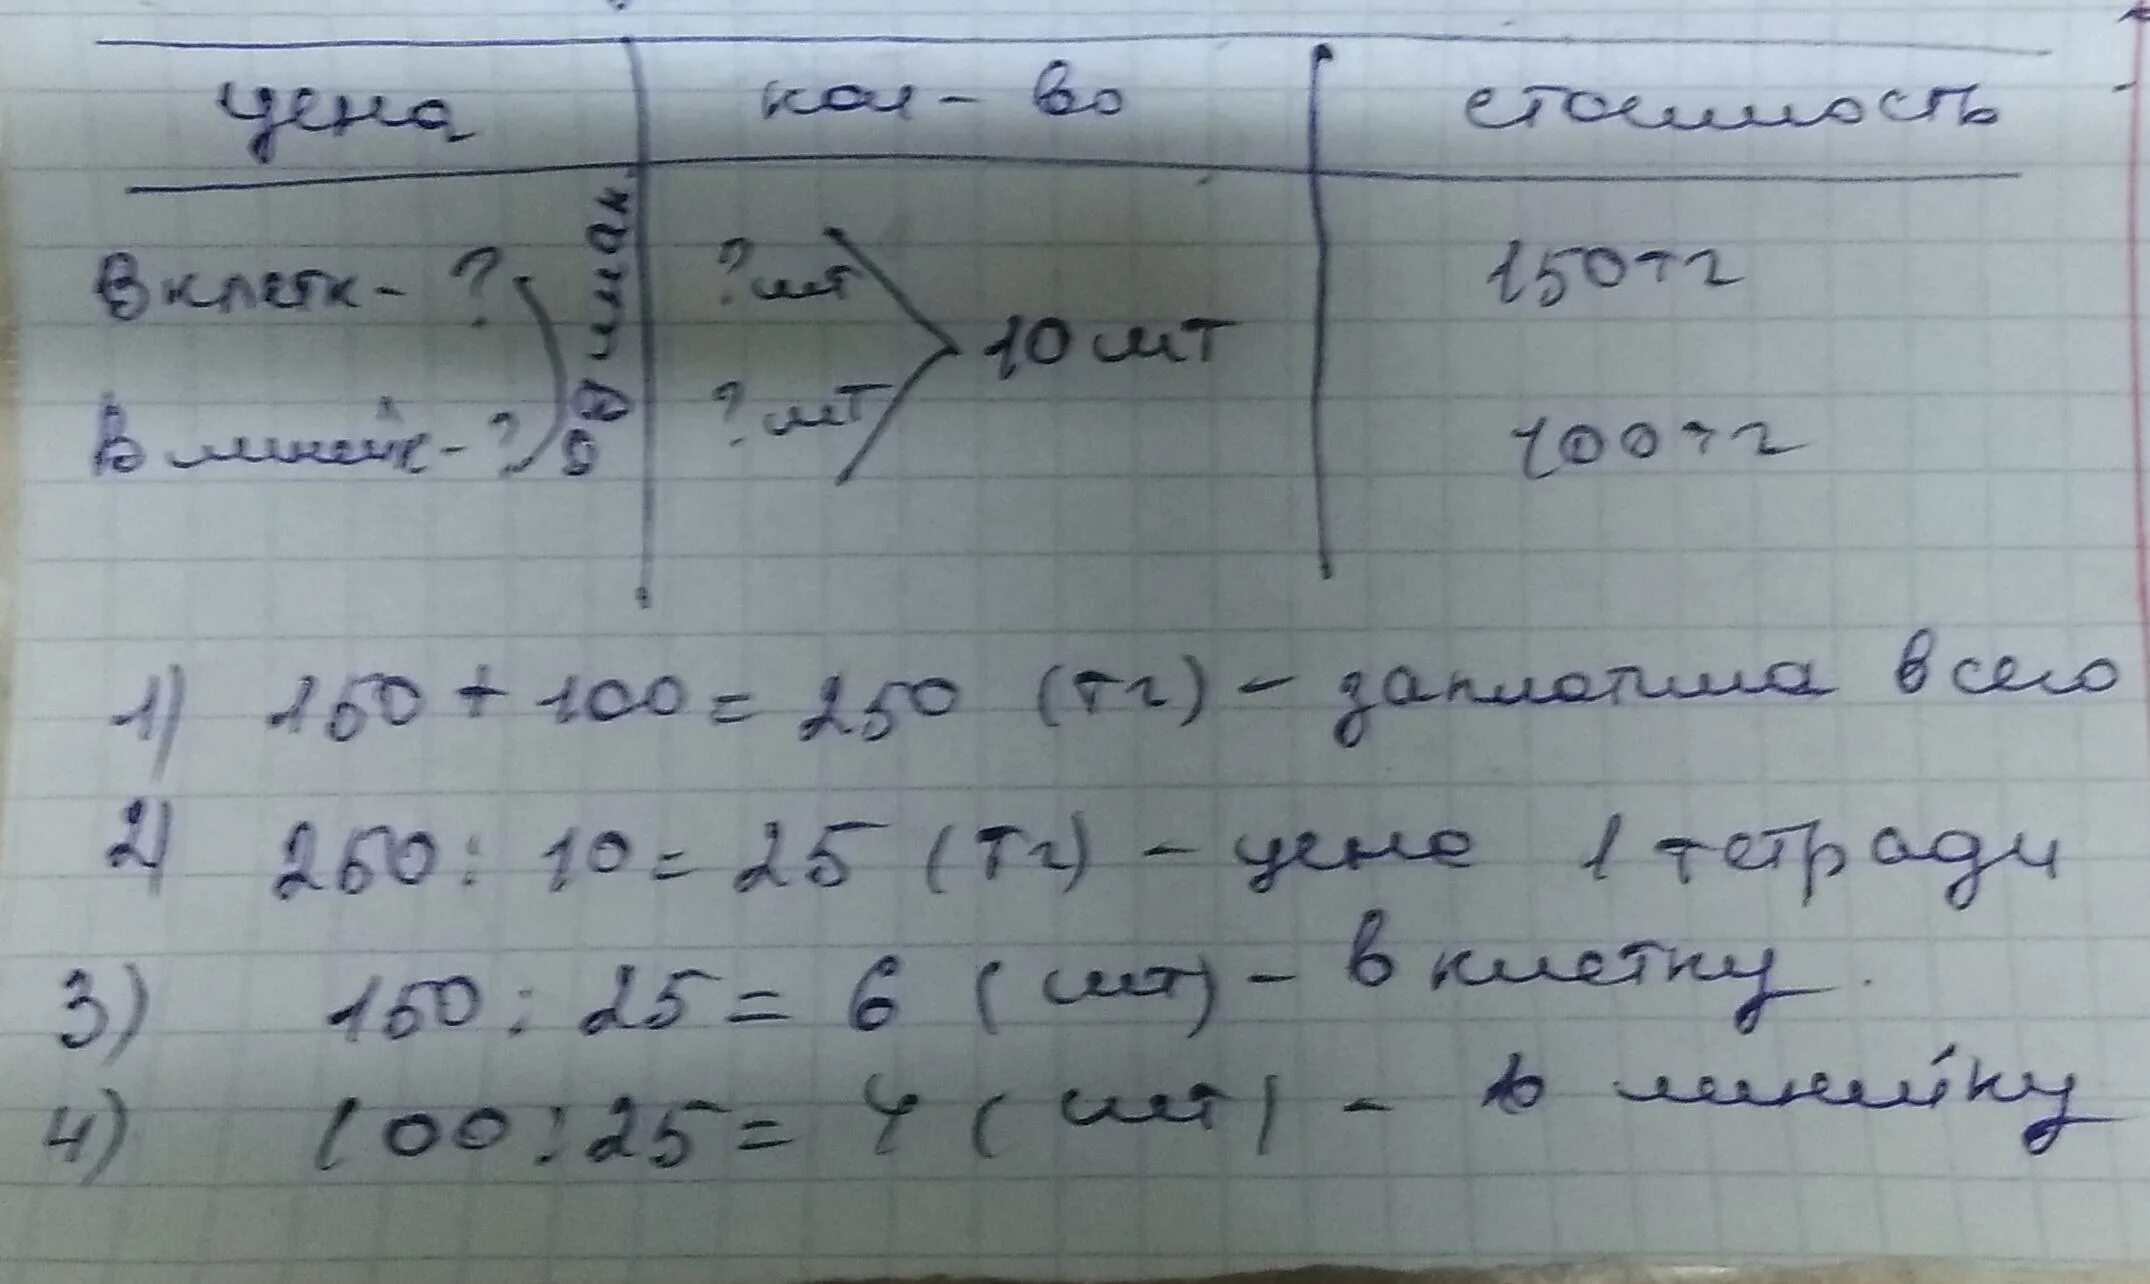 цена кол-во стоимость
В клетк - ? ? шт 150 тг
одинак.
10 шт
В линейк - ? ? шт 100 тг
1) 150 + 100 = 250 (тг) - заплатила всего
2) 250 : 10 = 25 (тг) - цена 1 тетради
3) 150 : 25 = 6 (шт) - в клетку.
4) 100 : 25 = 4 (шт) - в линейку